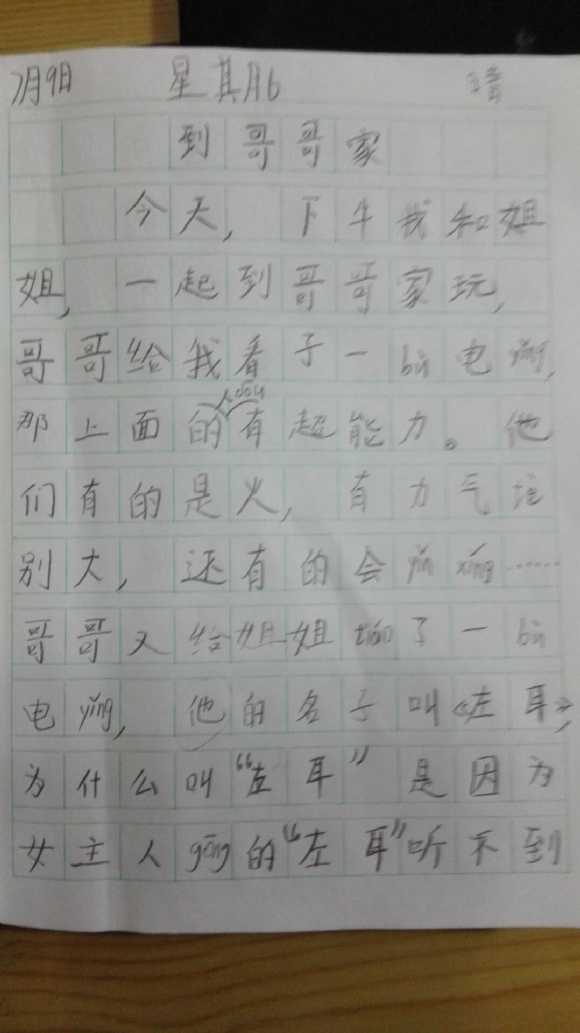 7月9日 星其月6 晴
到哥哥家
今天，下午我和姐
姐，一起到哥哥家玩，
哥哥给我看了一bù电yǐng，
那上面的人dōu有超能力。他
们有的是火，有力气
别大，还有的会yǐn xíng……
哥哥又给姐姐 了一bù
电yǐng，他的名子叫《左耳》，
为什么叫“左耳”是因为
女主人gōng的“左耳”听不到